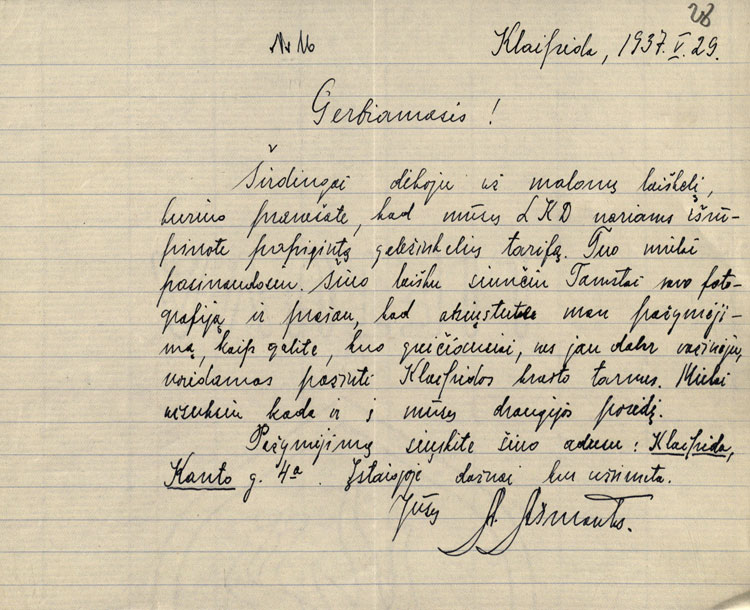 28
Nr 16
Klaipėda, 1937.V.29.
Gerbiamasis!
Širdingai dėkoju už malonų laiškelį,
kuriuo pranešate, kad mūsų LKD nariams išrū-
pinote papigintą geležinkelių tarifą. Tuo mielai
pasinaudosiu. Šiuo laišku siunčiu Tamstai savo foto-
grafiją ir prašau, kad atsiųstute man pažymėji-
mą, kaip galite, kuo greičiausiai, nes jau dabar važinėju,
norėdamas pažinti Klaipėdos krašto tarmes. Mielai
atsilankysiu kada ir į mūsų draugijos posėdį.
Pažymėjimą siųskite šiuo adresu: Klaipėda,
Kanto g. 4a. Įstaigoje dažnai
Jūsų